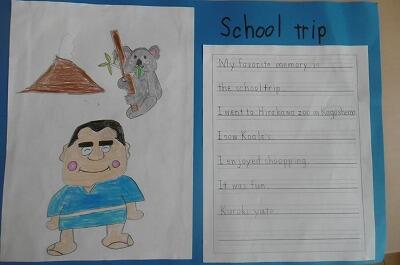 School trip
My favorite memory is
the school trip.
I went to Hirakawa zoo in Kagoshima.
I saw Koala's.
I enjoyed shoopping.
It was fun.
Kuroki yuto